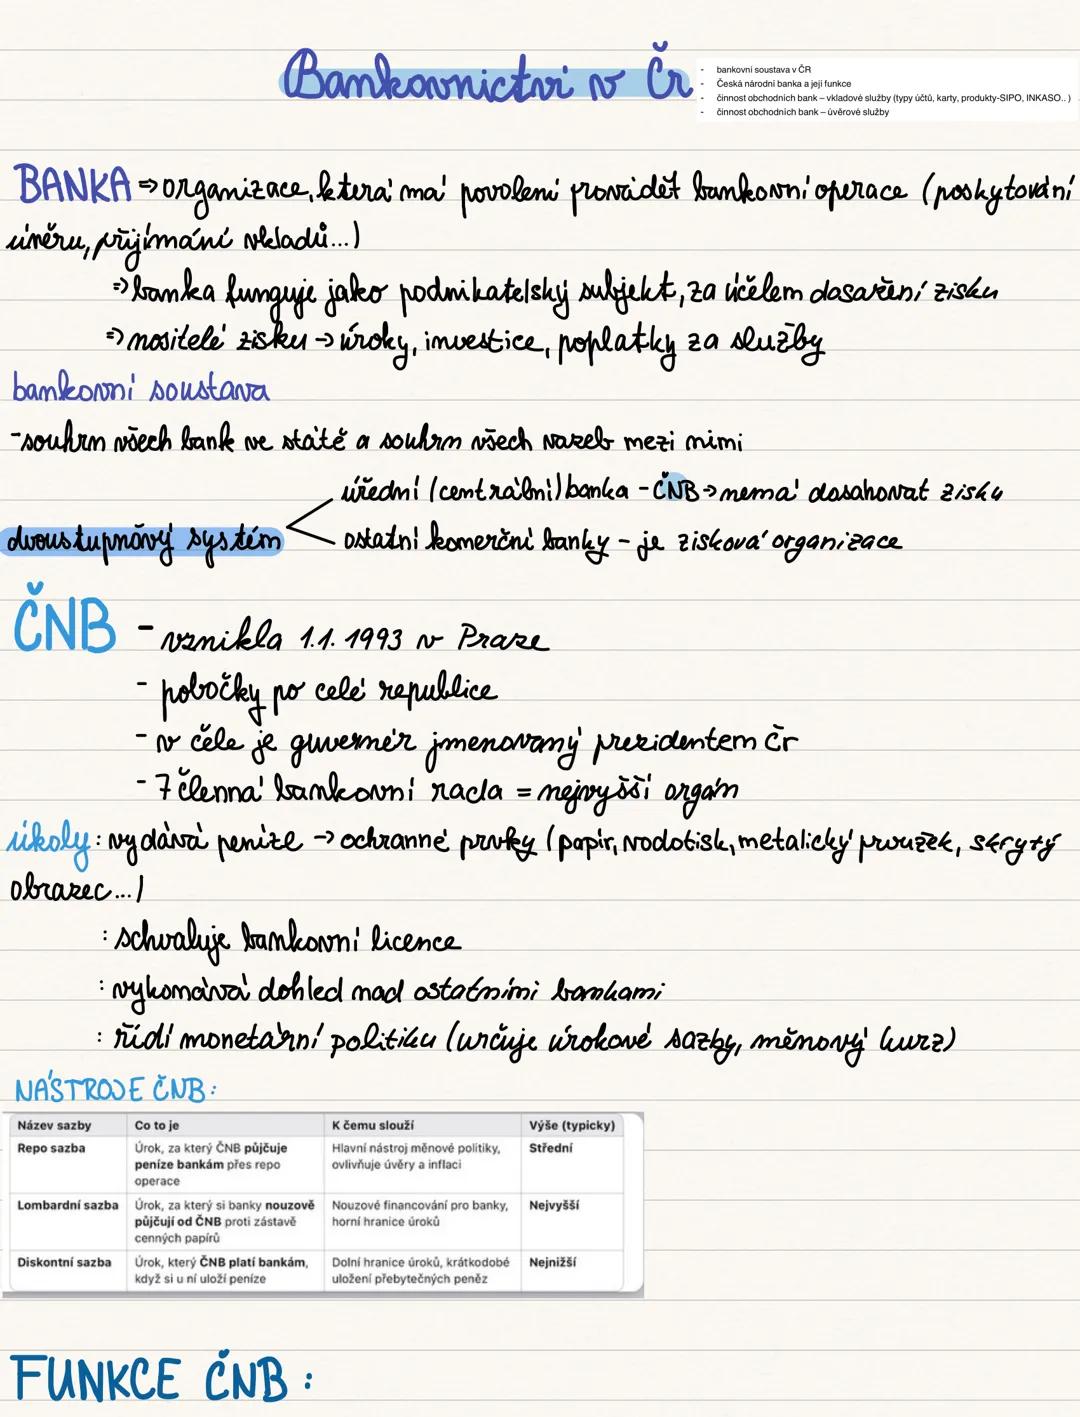 Bankovnictví v Čr
- bankovní soustava v ČR
- Česká národní banka a její funkce
- činnost obchodních bank – vkladové služby (typy účtů, karty, produkty-SIPO, INKASO.. )
- činnost obchodních bank – úvěrové služby
BANKA ⇒ organizace, která má povolení provádět bankovní operace (poskytování
úvěru, přijímání vkladů...)
⇒ banka funguje jako podnikatelský subjekt, za účelem dosažení zisku
⇒ nositelé zisku → úroky, investice, poplatky za služby
bankovní soustava
- souhrn všech bank ve státě a souhrn všech vazeb mezi nimi
úřední (centrální) banka - ČNB → nemá dosahovat zisku
dvoustupňový systém
ostatní komerční banky - je zisková organizace
ČNB - vznikla 1.1. 1993 v Praze
- pobočky po celé republice
- v čele je guvernér jmenovaný prezidentem čr
- 7 členná bankovní rada = nejvyšší orgán
úkoly: vydává peníze → ochranné prvky (papír, vodotisk, metalický proužek, skrytý
obrazec...)
: schvaluje bankovní licence
: vykonává dohled nad ostatními bankami
: řídí monetární politiku (určuje úrokové sazby, měnový kurz)
NÁSTROJE ČNB:
Název sazby Co to je K čemu slouží Výše (typicky)
Repo sazba Úrok, za který ČNB půjčuje Hlavní nástroj měnové politiky, Střední
peníze bankám přes repo ovlivňuje úvěry a inflaci
operace
Lombardní sazba Úrok, za který si banky nouzově Nouzové financování pro banky, Nejvyšší
půjčují od ČNB proti zástavě horní hranice úroků
cenných papírů
Diskontní sazba Úrok, který ČNB platí bankám, Dolní hranice úroků, krátkodobé Nejnižší
když si u ní uloží peníze uložení přebytečných peněz
FUNKCE ČNB: